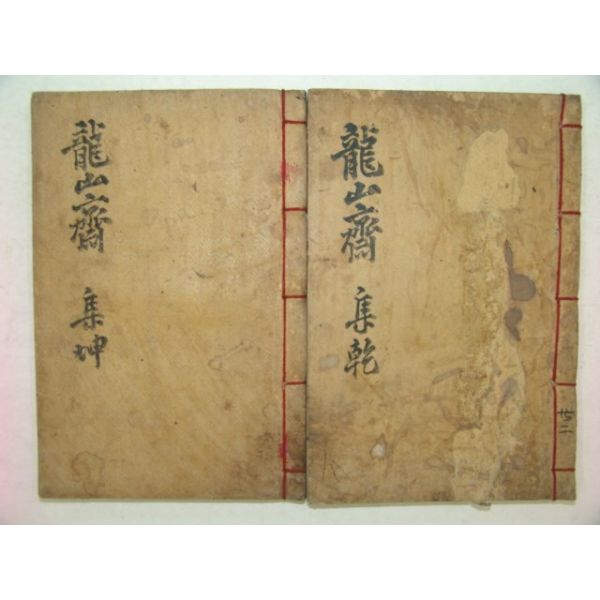 龍山齋 集乾
廿二
龍山齋 集坤